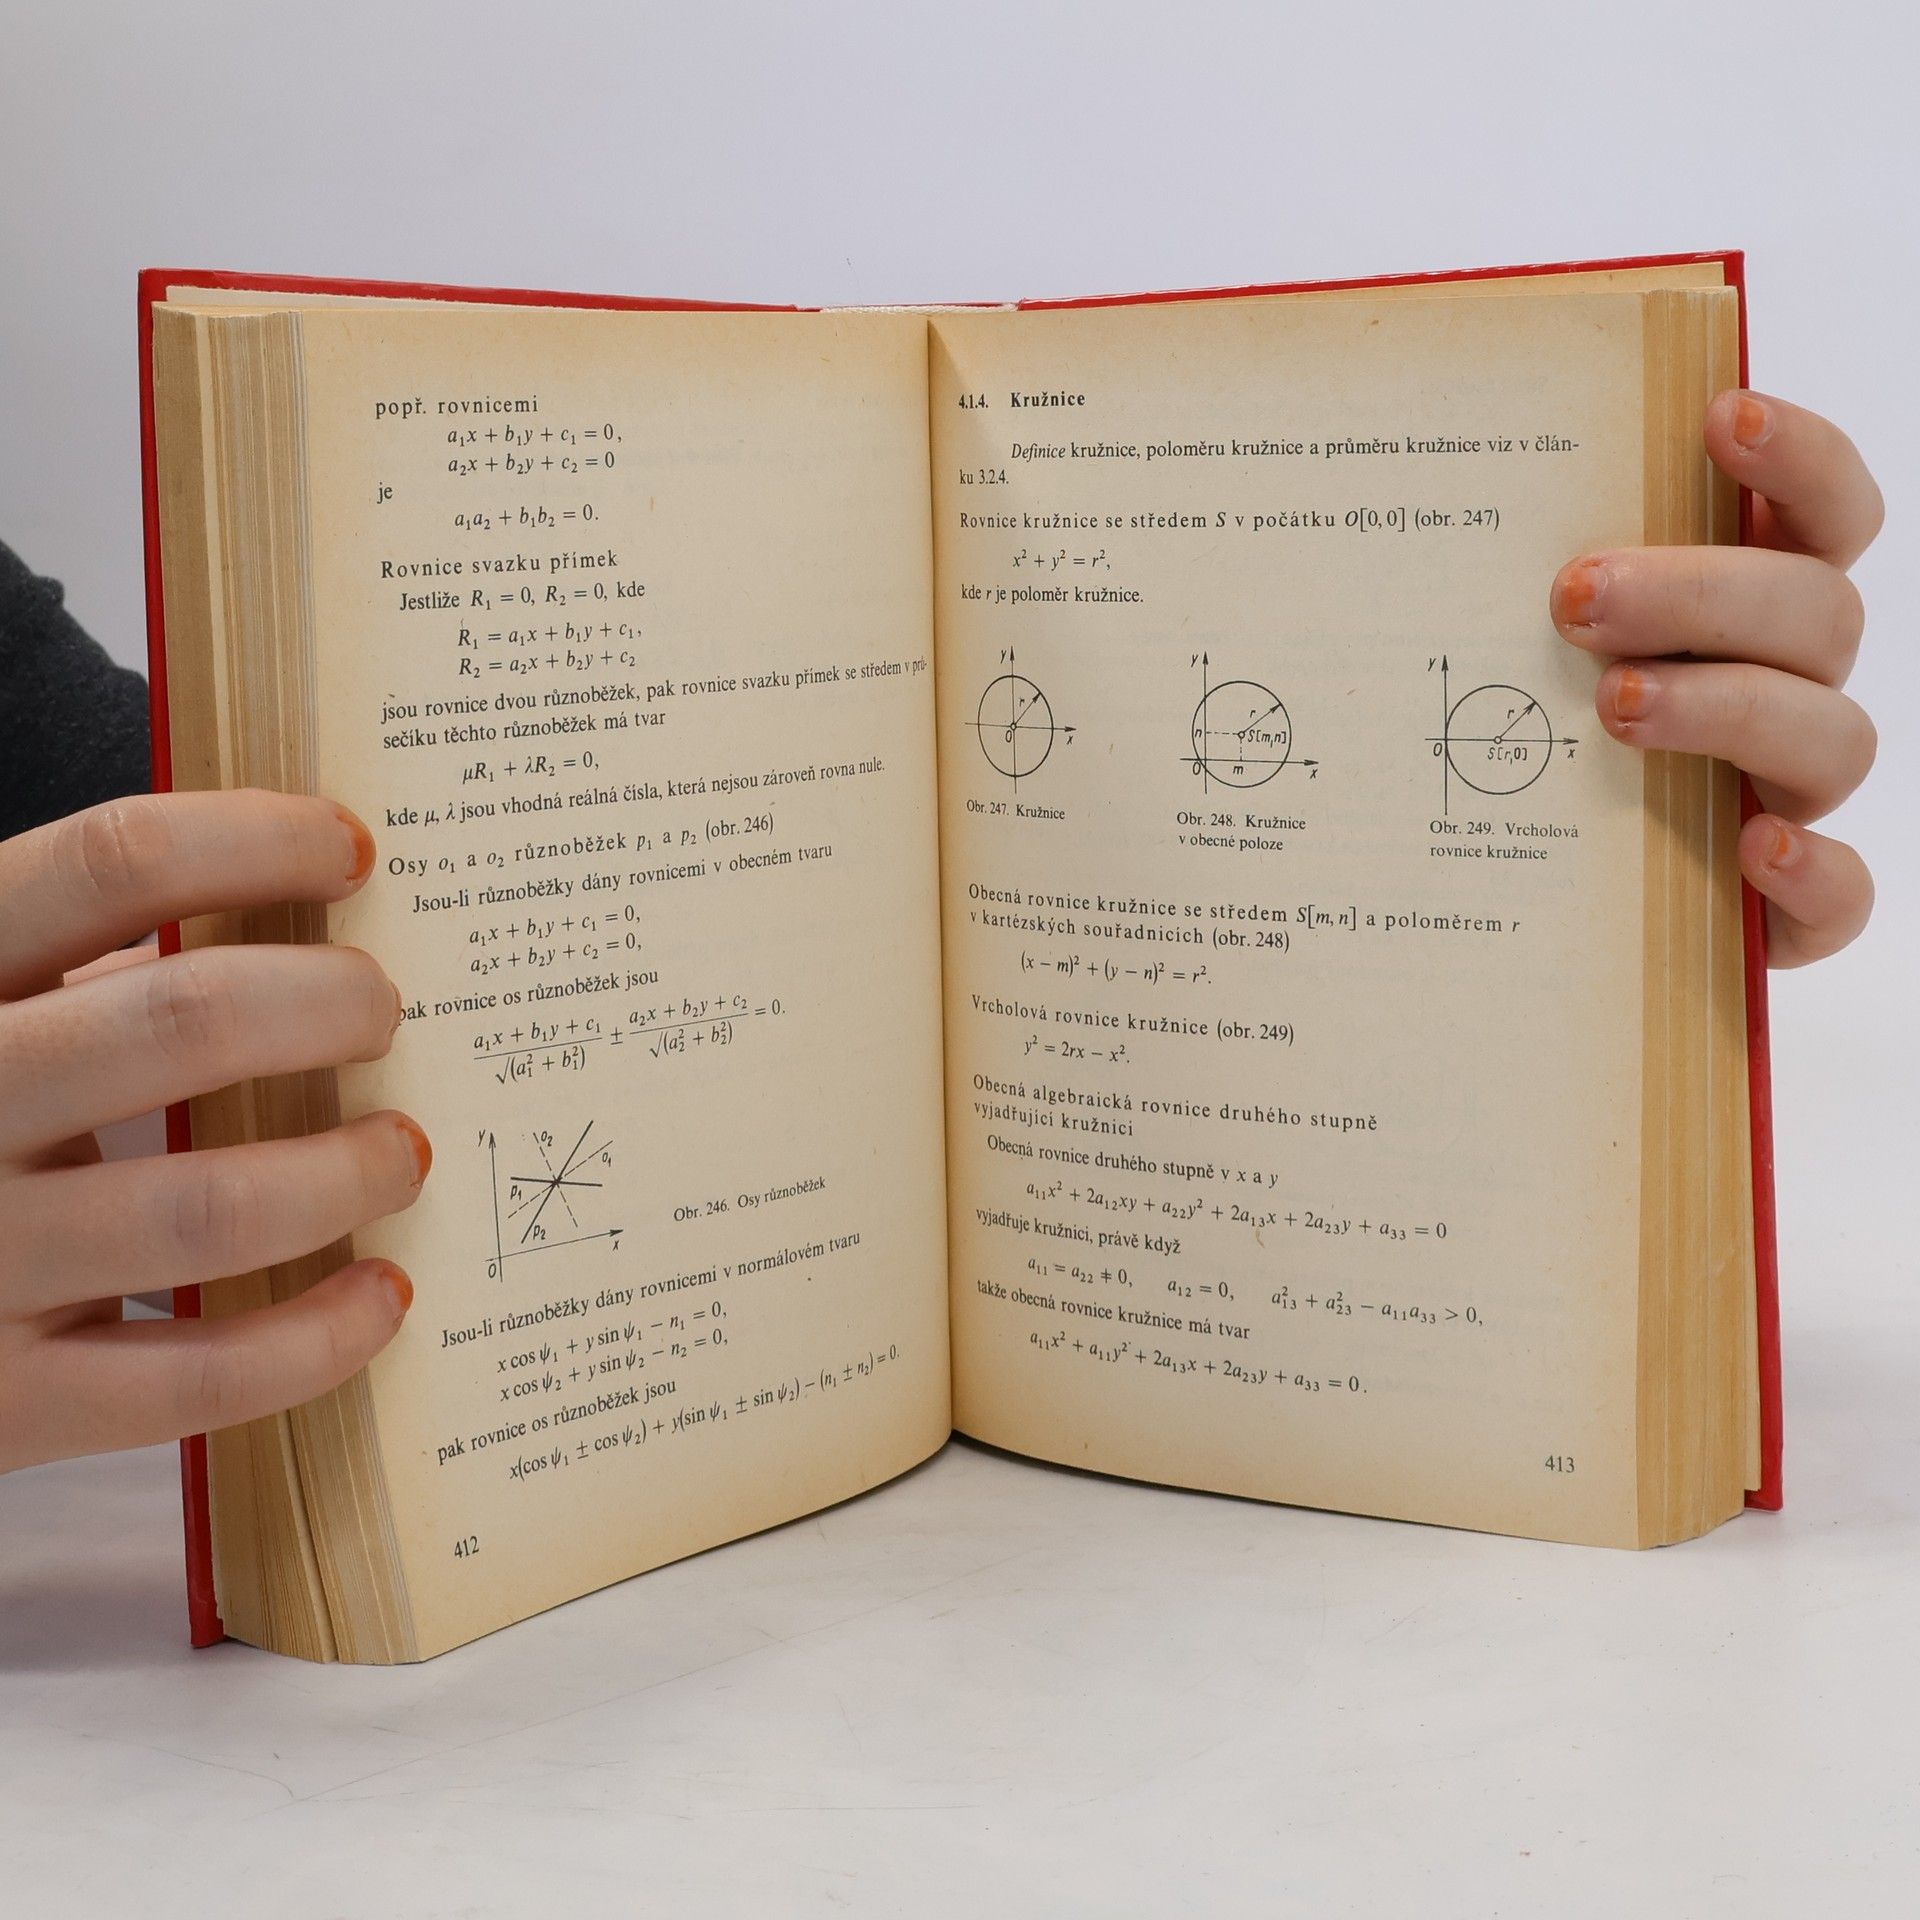 popř. rovnicemi
a₁x + b₁y + c₁ = 0,
a₂x + b₂y + c₂ = 0
je
a₁a₂ + b₁b₂ = 0.
Rovnice svazku přímek
Jestliže R₁ = 0, R₂ = 0, kde
R₁ = a₁x + b₁y + c₁,
R₂ = a₂x + b₂y + c₂
jsou rovnice dvou různoběžek, pak rovnice svazku přímek se středem v prů-
sečíku těchto různoběžek má tvar
μR₁ + λR₂ = 0,
kde μ, λ jsou vhodná reálná čísla, která nejsou zároveň rovna nule.
Osy o₁ a o₂ různoběžek p₁ a p₂ (obr. 246)
Jsou-li různoběžky dány rovnicemi v obecném tvaru
a₁x + b₁y + c₁ = 0,
a₂x + b₂y + c₂ = 0,
pak rovnice os různoběžek jsou
(a₁x + b₁y + c₁)/√(a₁² + b₁²) ± (a₂x + b₂y + c₂)/√(a₂² + b₂²) = 0.
y o₂ o₁
p₁
p₂
0 x
Obr. 246. Osy různoběžek
Jsou-li různoběžky dány rovnicemi v normálovém tvaru
x cos ψ₁ + y sin ψ₁ − n₁ = 0,
x cos ψ₂ + y sin ψ₂ − n₂ = 0,
pak rovnice os různoběžek jsou
x(cos ψ₁ ± cos ψ₂) + y(sin ψ₁ ± sin ψ₂) − (n₁ ± n₂) = 0.
412
4.1.4. Kružnice
Definice kružnice, poloměru kružnice a průměru kružnice viz v člán-
ku 3.2.4.
Rovnice kružnice se středem S v počátku O[0, 0] (obr. 247)
x² + y² = r²,
kde r je poloměr kružnice.
y
r
0 x
Obr. 247. Kružnice
y
r
n S[m,n]
0 m x
Obr. 248. Kružnice
v obecné poloze
y
r
0 S[r,0] x
Obr. 249. Vrcholová
rovnice kružnice
Obecná rovnice kružnice se středem S[m, n] a poloměrem r
v kartézských souřadnicích (obr. 248)
(x − m)² + (y − n)² = r².
Vrcholová rovnice kružnice (obr. 249)
y² = 2rx − x².
Obecná algebraická rovnice druhého stupně
vyjadřující kružnici
Obecná rovnice druhého stupně v x a y
a₁₁x² + 2a₁₂xy + a₂₂y² + 2a₁₃x + 2a₂₃y + a₃₃ = 0
vyjadřuje kružnici, právě když
a₁₁ = a₂₂ ≠ 0, a₁₂ = 0, a₁₃² + a₂₃² − a₁₁a₃₃ > 0,
takže obecná rovnice kružnice má tvar
a₁₁x² + a₁₁y² + 2a₁₃x + 2a₂₃y + a₃₃ = 0.
413